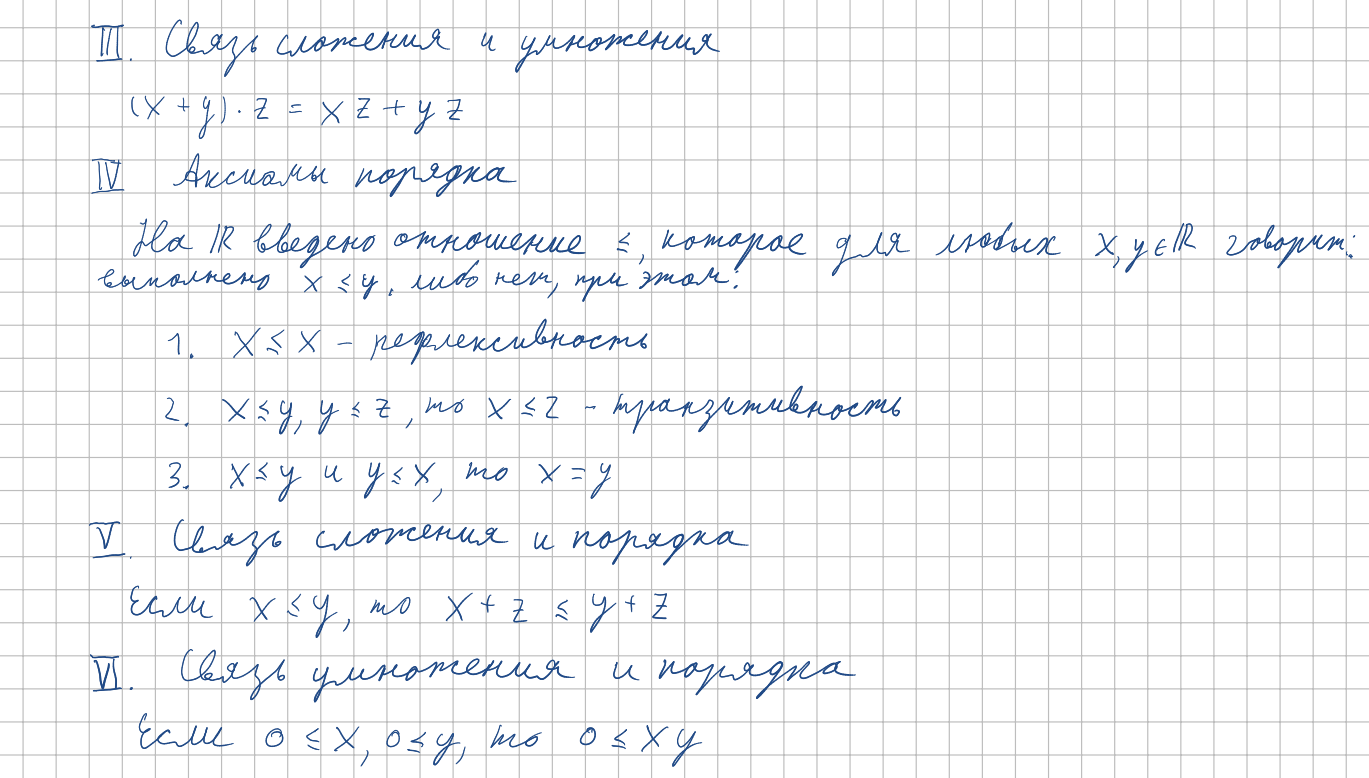 III. Связь сложения и умножения
(x + y) · z = x z + y z
IV Аксиомы порядка
На ℝ введено отношение ≤, которое для любых x, y ∈ ℝ говорит:
выполнено x ≤ y, либо нет, при этом:
1. x ≤ x – рефлексивность
2. x ≤ y, y ≤ z, то x ≤ z – транзитивность
3. x ≤ y и y ≤ x, то x = y
V. Связь сложения и порядка
Если x ≤ y, то x + z ≤ y + z
VI. Связь умножения и порядка
Если 0 ≤ x, 0 ≤ y, то 0 ≤ x y